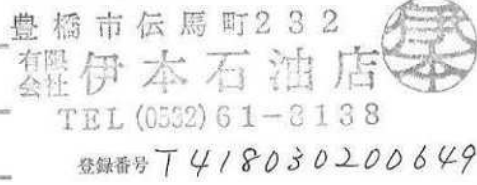 豊橋市伝馬町232
有限会社 伊本石油店
伊本
TEL (0532) 61-3138
登録番号 T4180302006497